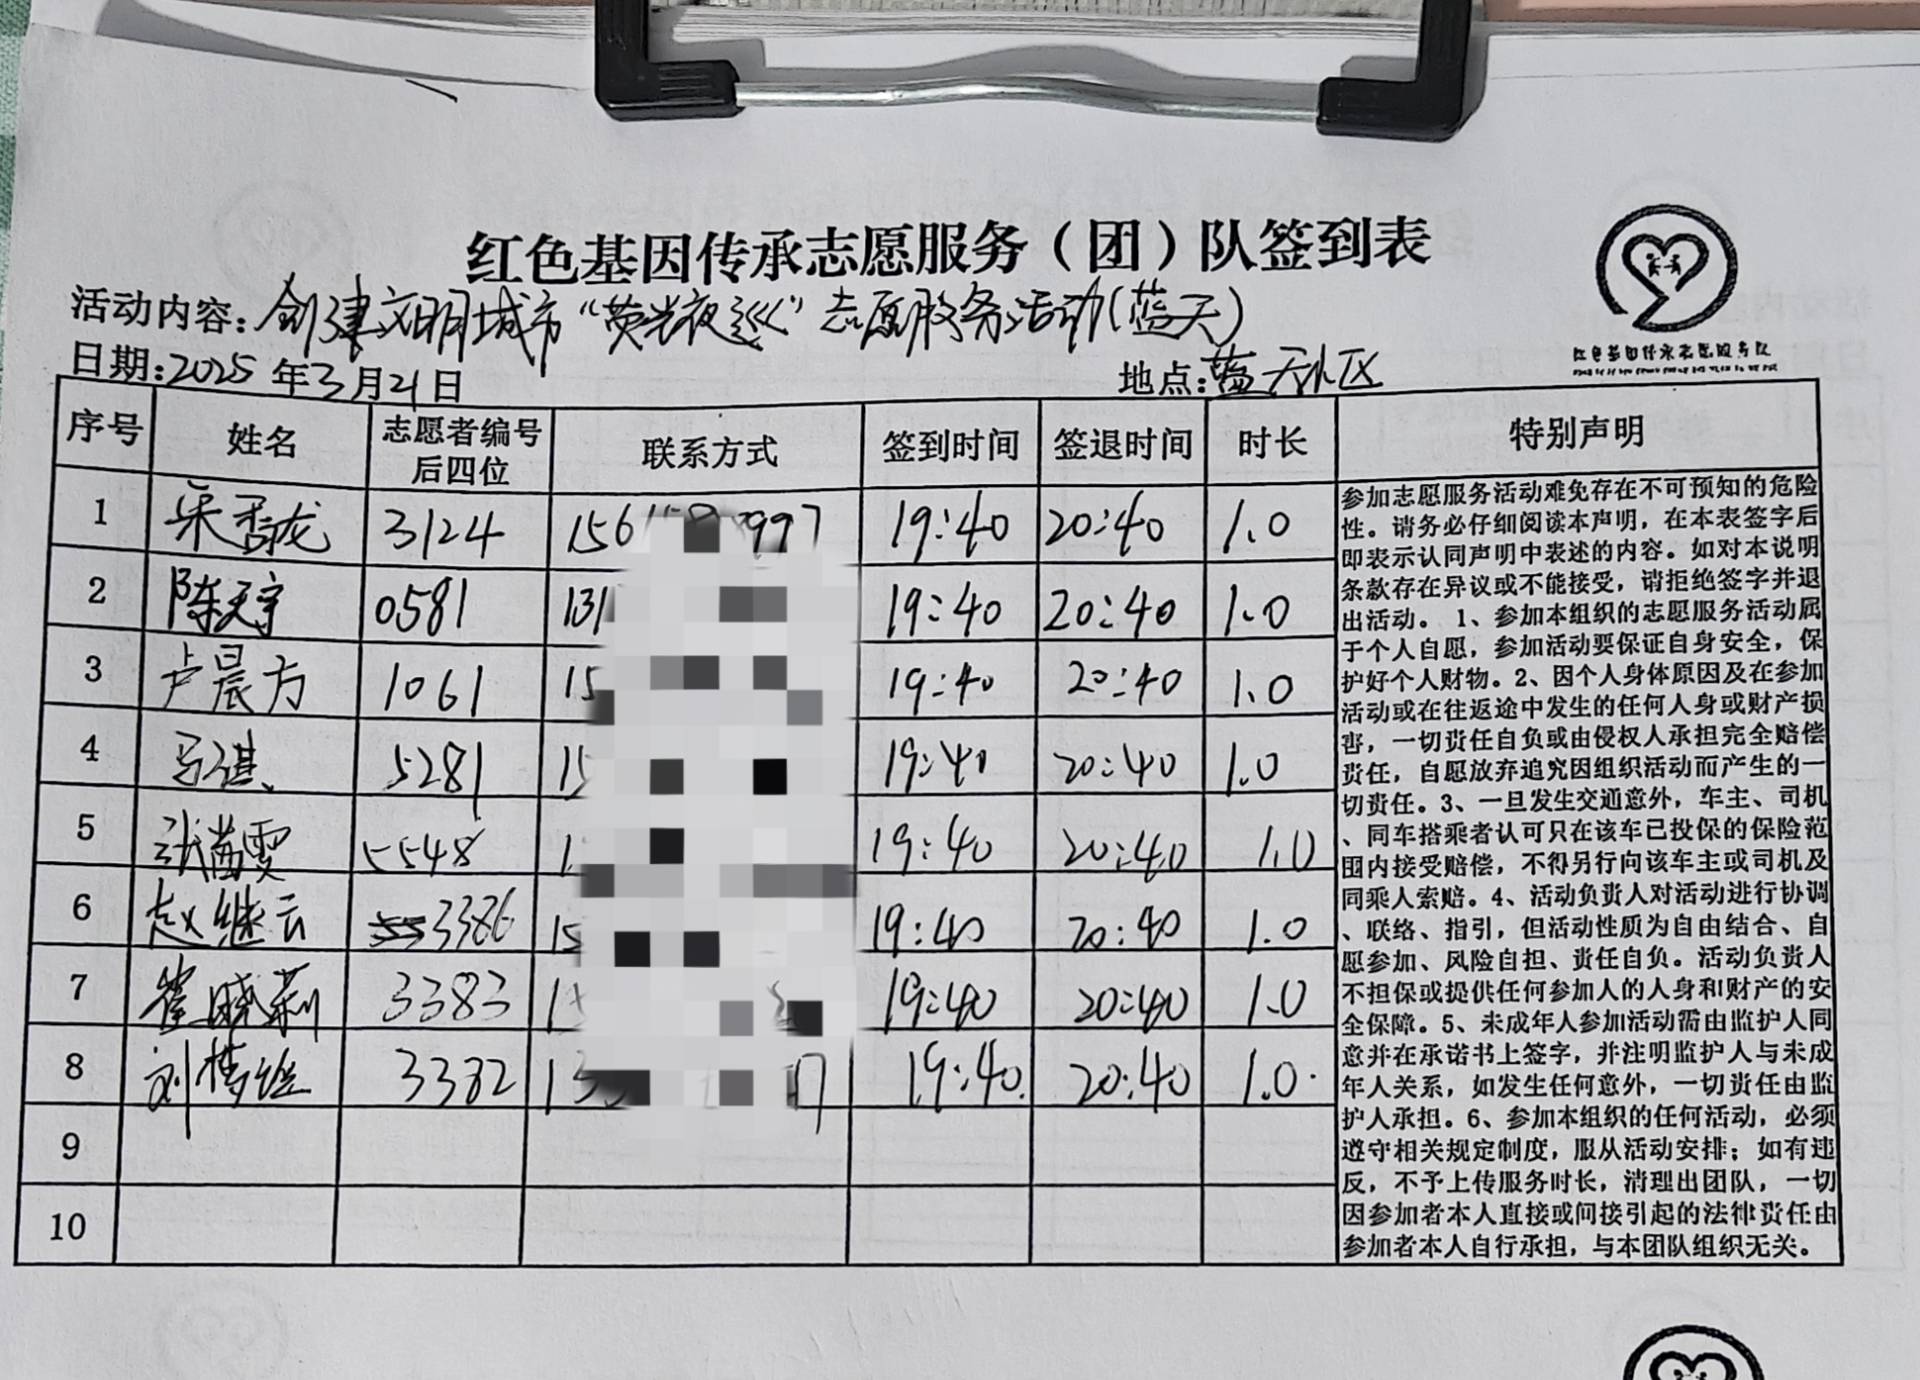 红色基因传承志愿服务（团）队签到表
活动内容：创建文明城市“荧光夜巡”志愿服务活动(蓝天)
日期：2025年3月21日 地点：蓝天小区
红色基因传承志愿服务队
序号 姓名 志愿者编号后四位 联系方式 签到时间 签退时间 时长 特别声明
1 龙 3124 156 997 19:40 20:40 1.0
2 陈天宇 0581 131 19:40 20:40 1.0
3 卢晨方 1061 15 19:40 20:40 1.0
4 马 5281 15 19:40 20:40 1.0
5 张雯 5548 1 19:40 20:40 1.0
6 赵继云 3386 15 19:40 20:40 1.0
7 崔晓莉 3383 1 19:40 20:40 1.0
8 刘 3382 13 7 19:40 20:40 1.0
9
10
参加志愿服务活动难免存在不可预知的危险
性。请务必仔细阅读本声明，在本表签字后
即表示认同声明中表述的内容。如对本说明
条款存在异议或不能接受，请拒绝签字并退
出活动。 1、参加本组织的志愿服务活动属
于个人自愿，参加活动要保证自身安全，保
护好个人财物。2、因个人身体原因及在参加
活动或在往返途中发生的任何人身或财产损
害，一切责任自负或由侵权人承担完全赔偿
责任，自愿放弃追究因组织活动而产生的一
切责任。3、一旦发生交通意外，车主、司机
、同车搭乘者认可只在该车已投保的保险范
围内接受赔偿，不得另行向该车主或司机及
同乘人索赔。4、活动负责人对活动进行协调
、联络、指引，但活动性质为自由结合、自
愿参加、风险自担、责任自负。活动负责人
不担保或提供任何参加人的人身和财产的安
全保障。5、未成年人参加活动需由监护人同
意并在承诺书上签字，并注明监护人与未成
年人关系，如发生任何意外，一切责任由监
护人承担。6、参加本组织的任何活动，必须
遵守相关规定制度，服从活动安排；如有违
反，不予上传服务时长，清理出团队，一切
因参加者本人直接或间接引起的法律责任由
参加者本人自行承担，与本团队组织无关。